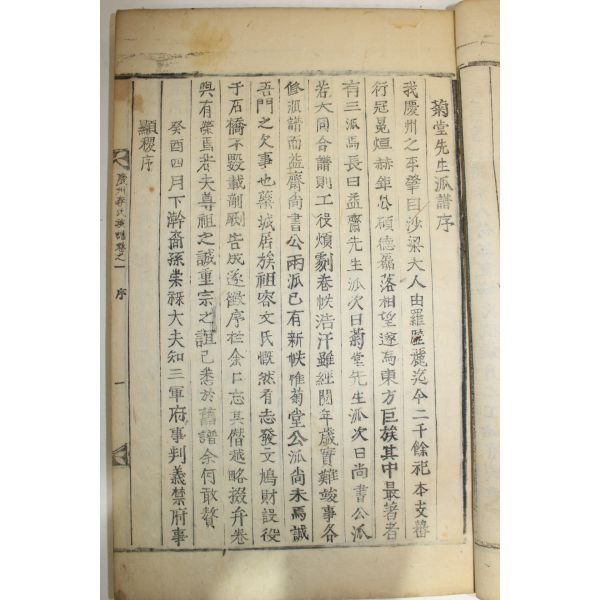 菊堂先生派譜序
我慶州之李肇自沙梁大人由羅麗迄今二千餘祀本支蕃
行冠冕煊赫鉅公碩德磊落相望遂爲東方巨族其中最著者
有三派焉長曰益齋先生派次曰菊堂先生派次曰尚書公派
若大同合譜則工役煩劇卷帙浩汗雖經閱年歲實難竣事各
修派譜而益齋尚書公兩派已有新帙惟菊堂公派尚未焉誠
吾門之欠事也藥城居族祖容文氏慨然有志發文鳩財設役
于石橋不數載剞劂告成遂徵序於余曰忘其僭越略掇弁卷
與有榮焉者夫尊祖之誠重宗之誼已悉於舊譜余何敢贅
癸酉四月下澣裔孫崇祿大夫知三軍府事判義禁府事
顯稷序
慶州李氏派譜卷之一 序 一